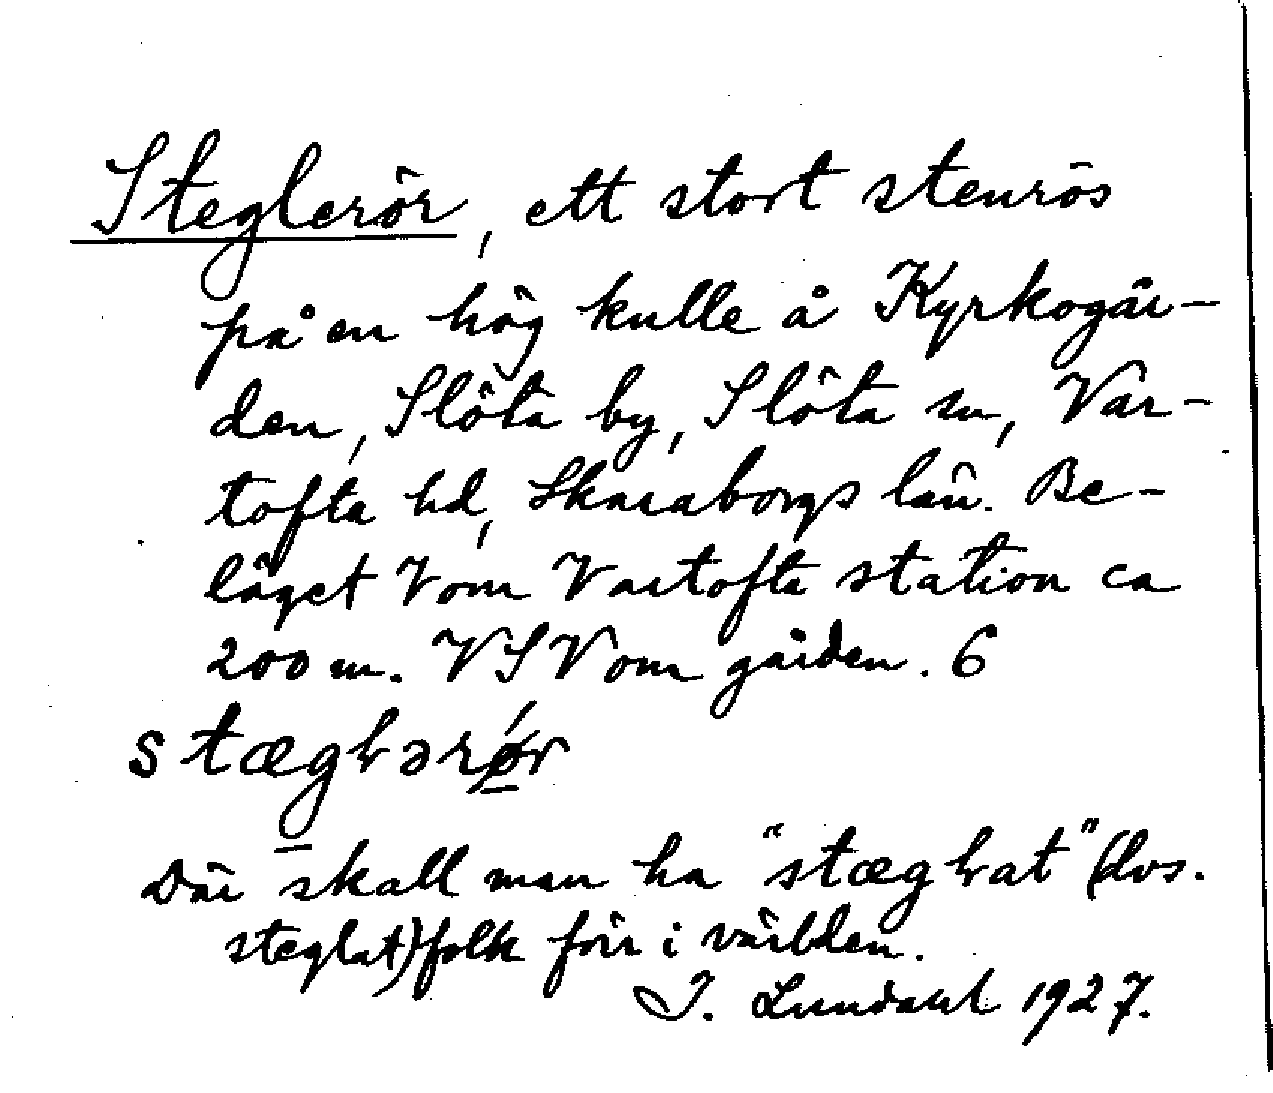 Steglerör, ett stort stenrös
på en hög kulle å Kyrkogår-
den, Slöta by, Slöta sn, Var-
tofta hd, Skaraborgs län. Be-
läget V om Vartofta station ca
200 m. VSV om gården. 6
stæglərør
Där skall man ha "stæglat" (dvs.
steglat) folk förr i världen.
I. Lundahl 1927.